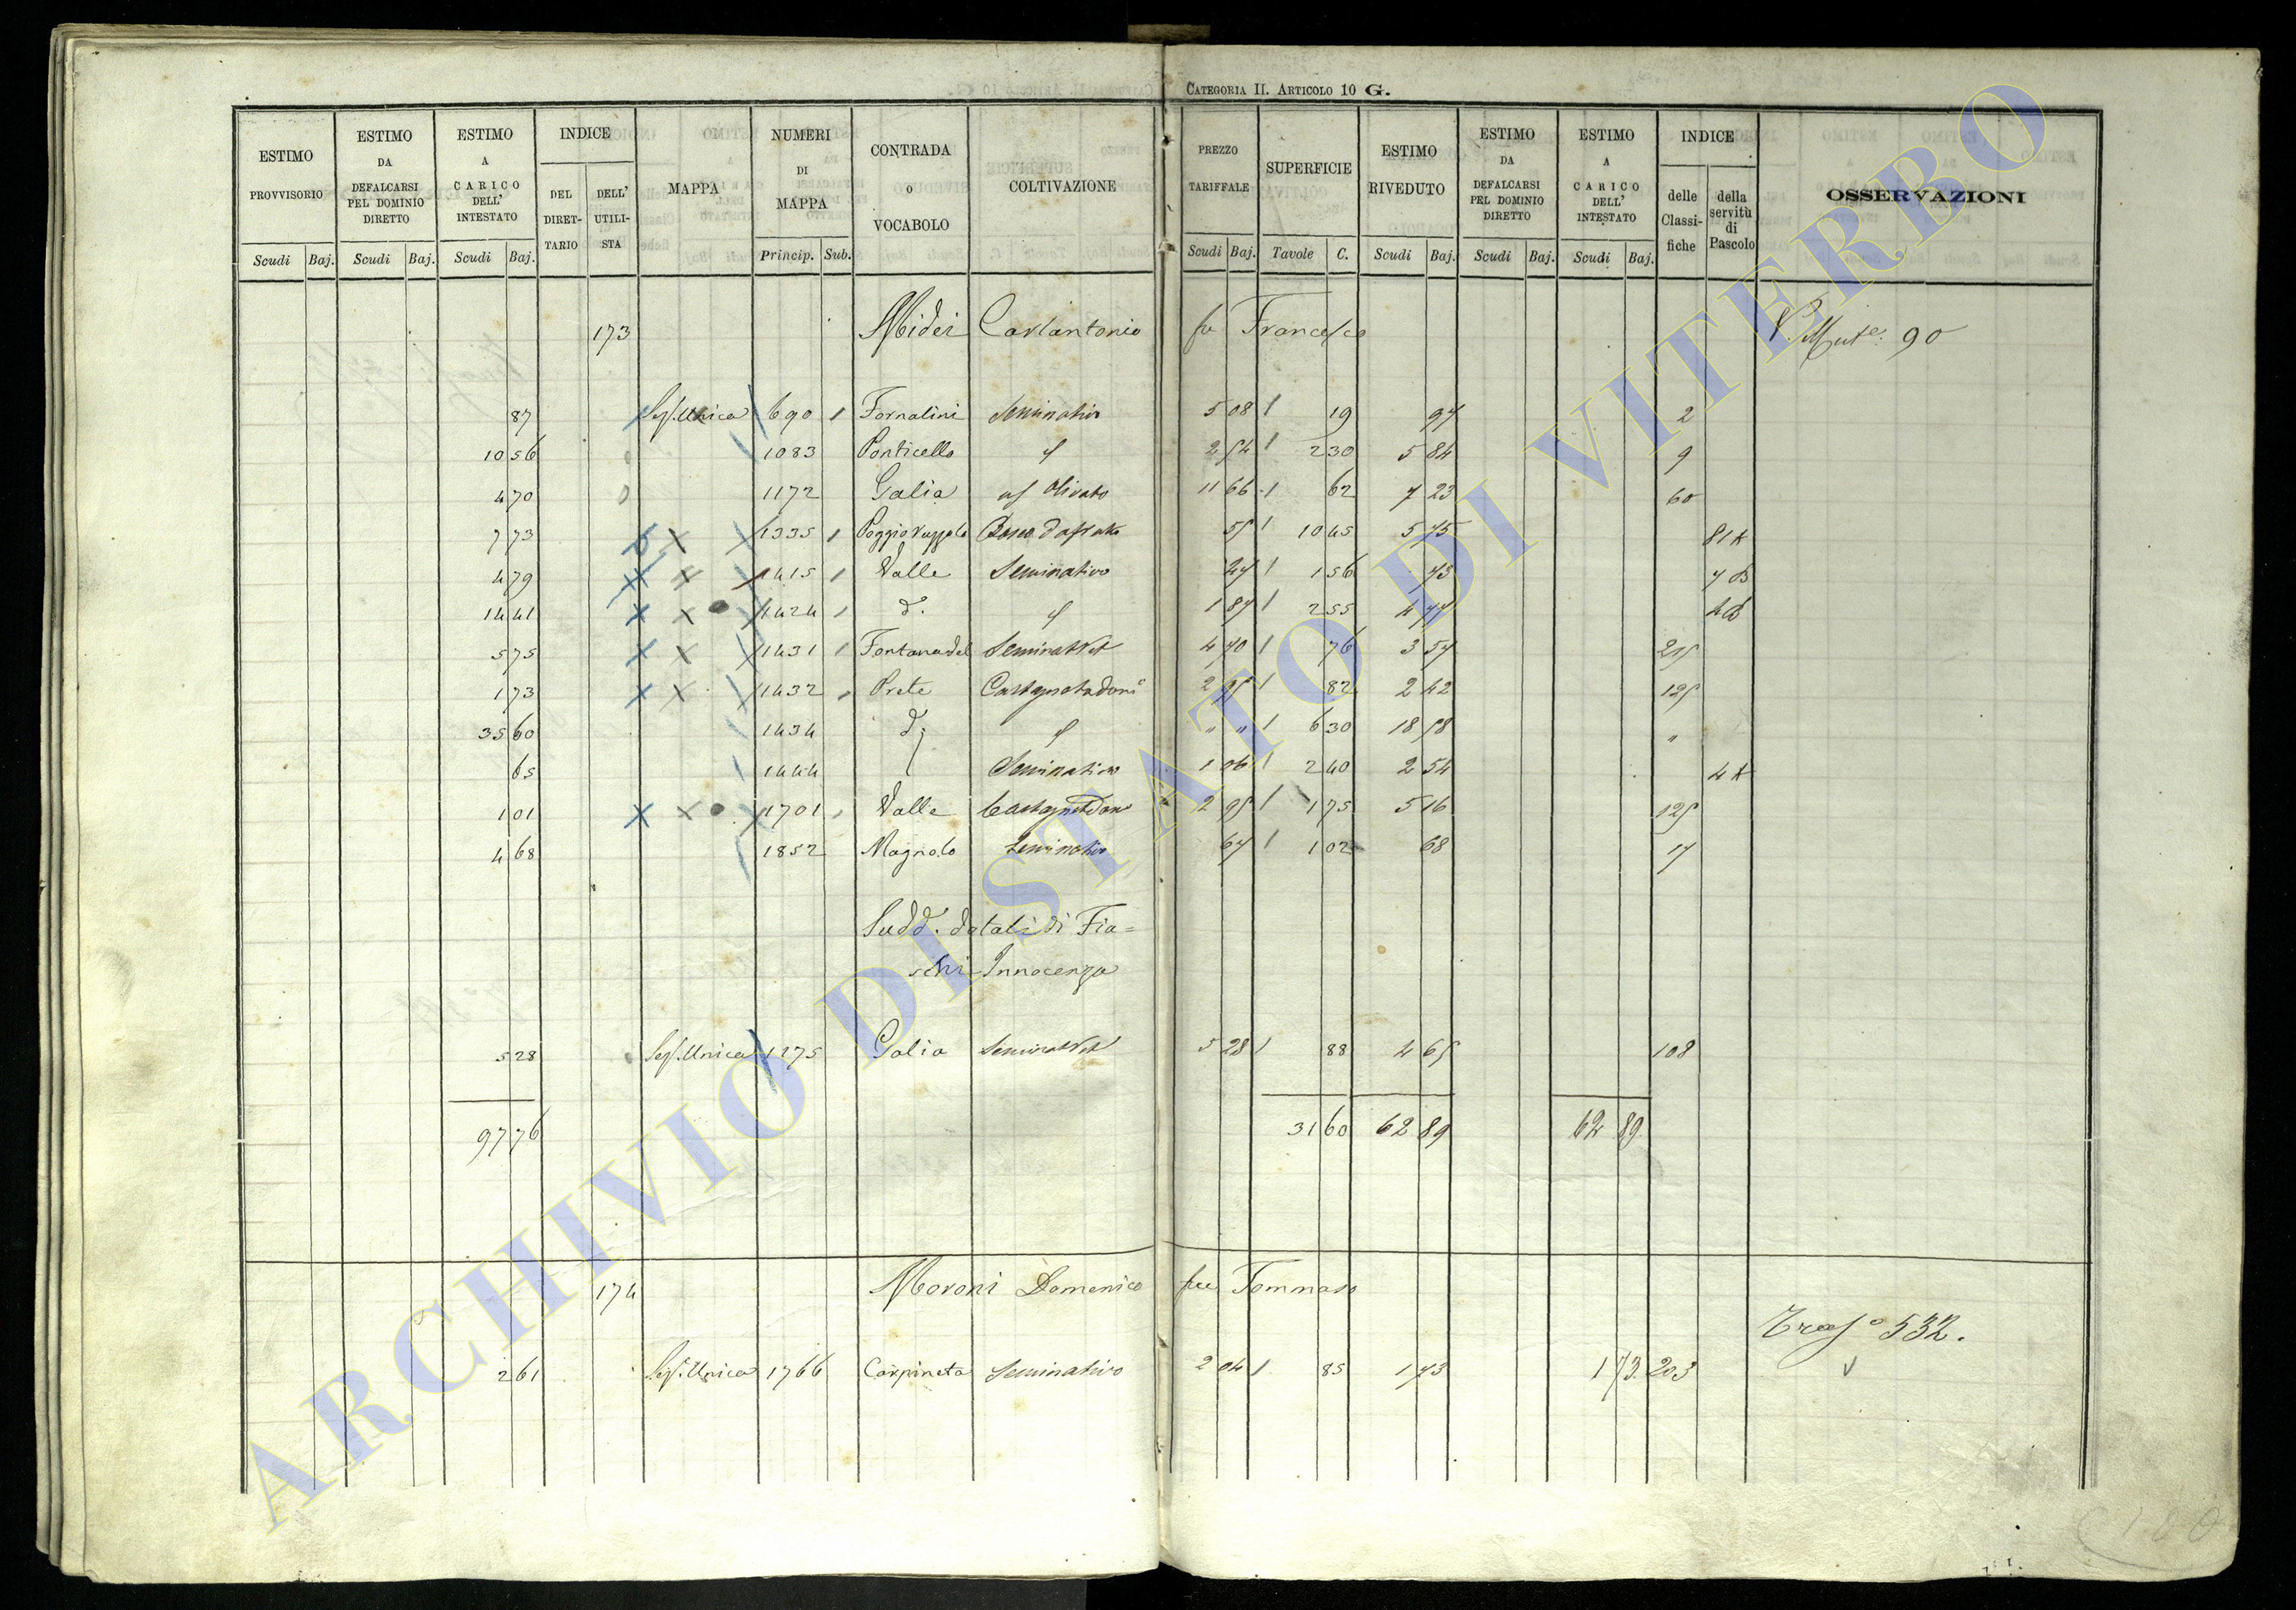 CATEGORIA II. ARTICOLO 10 G.
ESTIMO PROVVISORIO Scudi Baj. ESTIMO DA DEFALCARSI PEL DOMINIO DIRETTO Scudi Baj. ESTIMO A CARICO DELL' INTESTATO Scudi Baj. INDICE DEL DIRET-TARIO DELL' UTILI-STA MAPPA NUMERI DI MAPPA Princip. Sub. CONTRADA o VOCABOLO COLTIVAZIONE PREZZO TARIFFALE Scudi Baj. SUPERFICIE Tavole C. ESTIMO RIVEDUTO Scudi Baj. ESTIMO DA DEFALCARSI PEL DOMINIO DIRETTO Scudi Baj. ESTIMO A CARICO DELL' INTESTATO Scudi Baj. INDICE delle Classi-fiche della servitù di Pascolo OSSERVAZIONI
173 Midei Carlantonio fu Francesco 90
87 Sez. Unica 690 Fornalini Seminativo 5 08 19 97 2
10 56 1083 Ponticello 2 54 2 30 5 84 9
4 70 1172 Galia Olivato 11 66 62 7 23 60
7 73 1335 55 10 45 5 75
4 79 1415 Valle Seminativo 47 1 56 73
14 41 1424 d. 1 87 2 55 4 77
5 75 1431 Fontana del 4 70 76 3 57 215
1 73 1432 Prete 2 95 82 2 42 125
35 60 1434 d. " " 6 30 18 58 "
65 1444 Seminativo 1 06 2 40 2 54
1 01 1701 Valle 2 95 1 75 5 16 125
4 68 1852 Magnolo Seminativo 67 1 02 68 17
Sudd. dotali di Fia=
schi Innocenza
5 28 Sez. Unica 1175 Galia 5 28 88 4 65 108
97 76 31 60 62 89 62 89
174 Moroni Domenico fu Tommaso
532.
2 61 Sez. Unica 1766 Carpineta Seminativo 2 04 85 1 73 1 73 203
100
ARCHIVIO DI STATO DI VITERBO